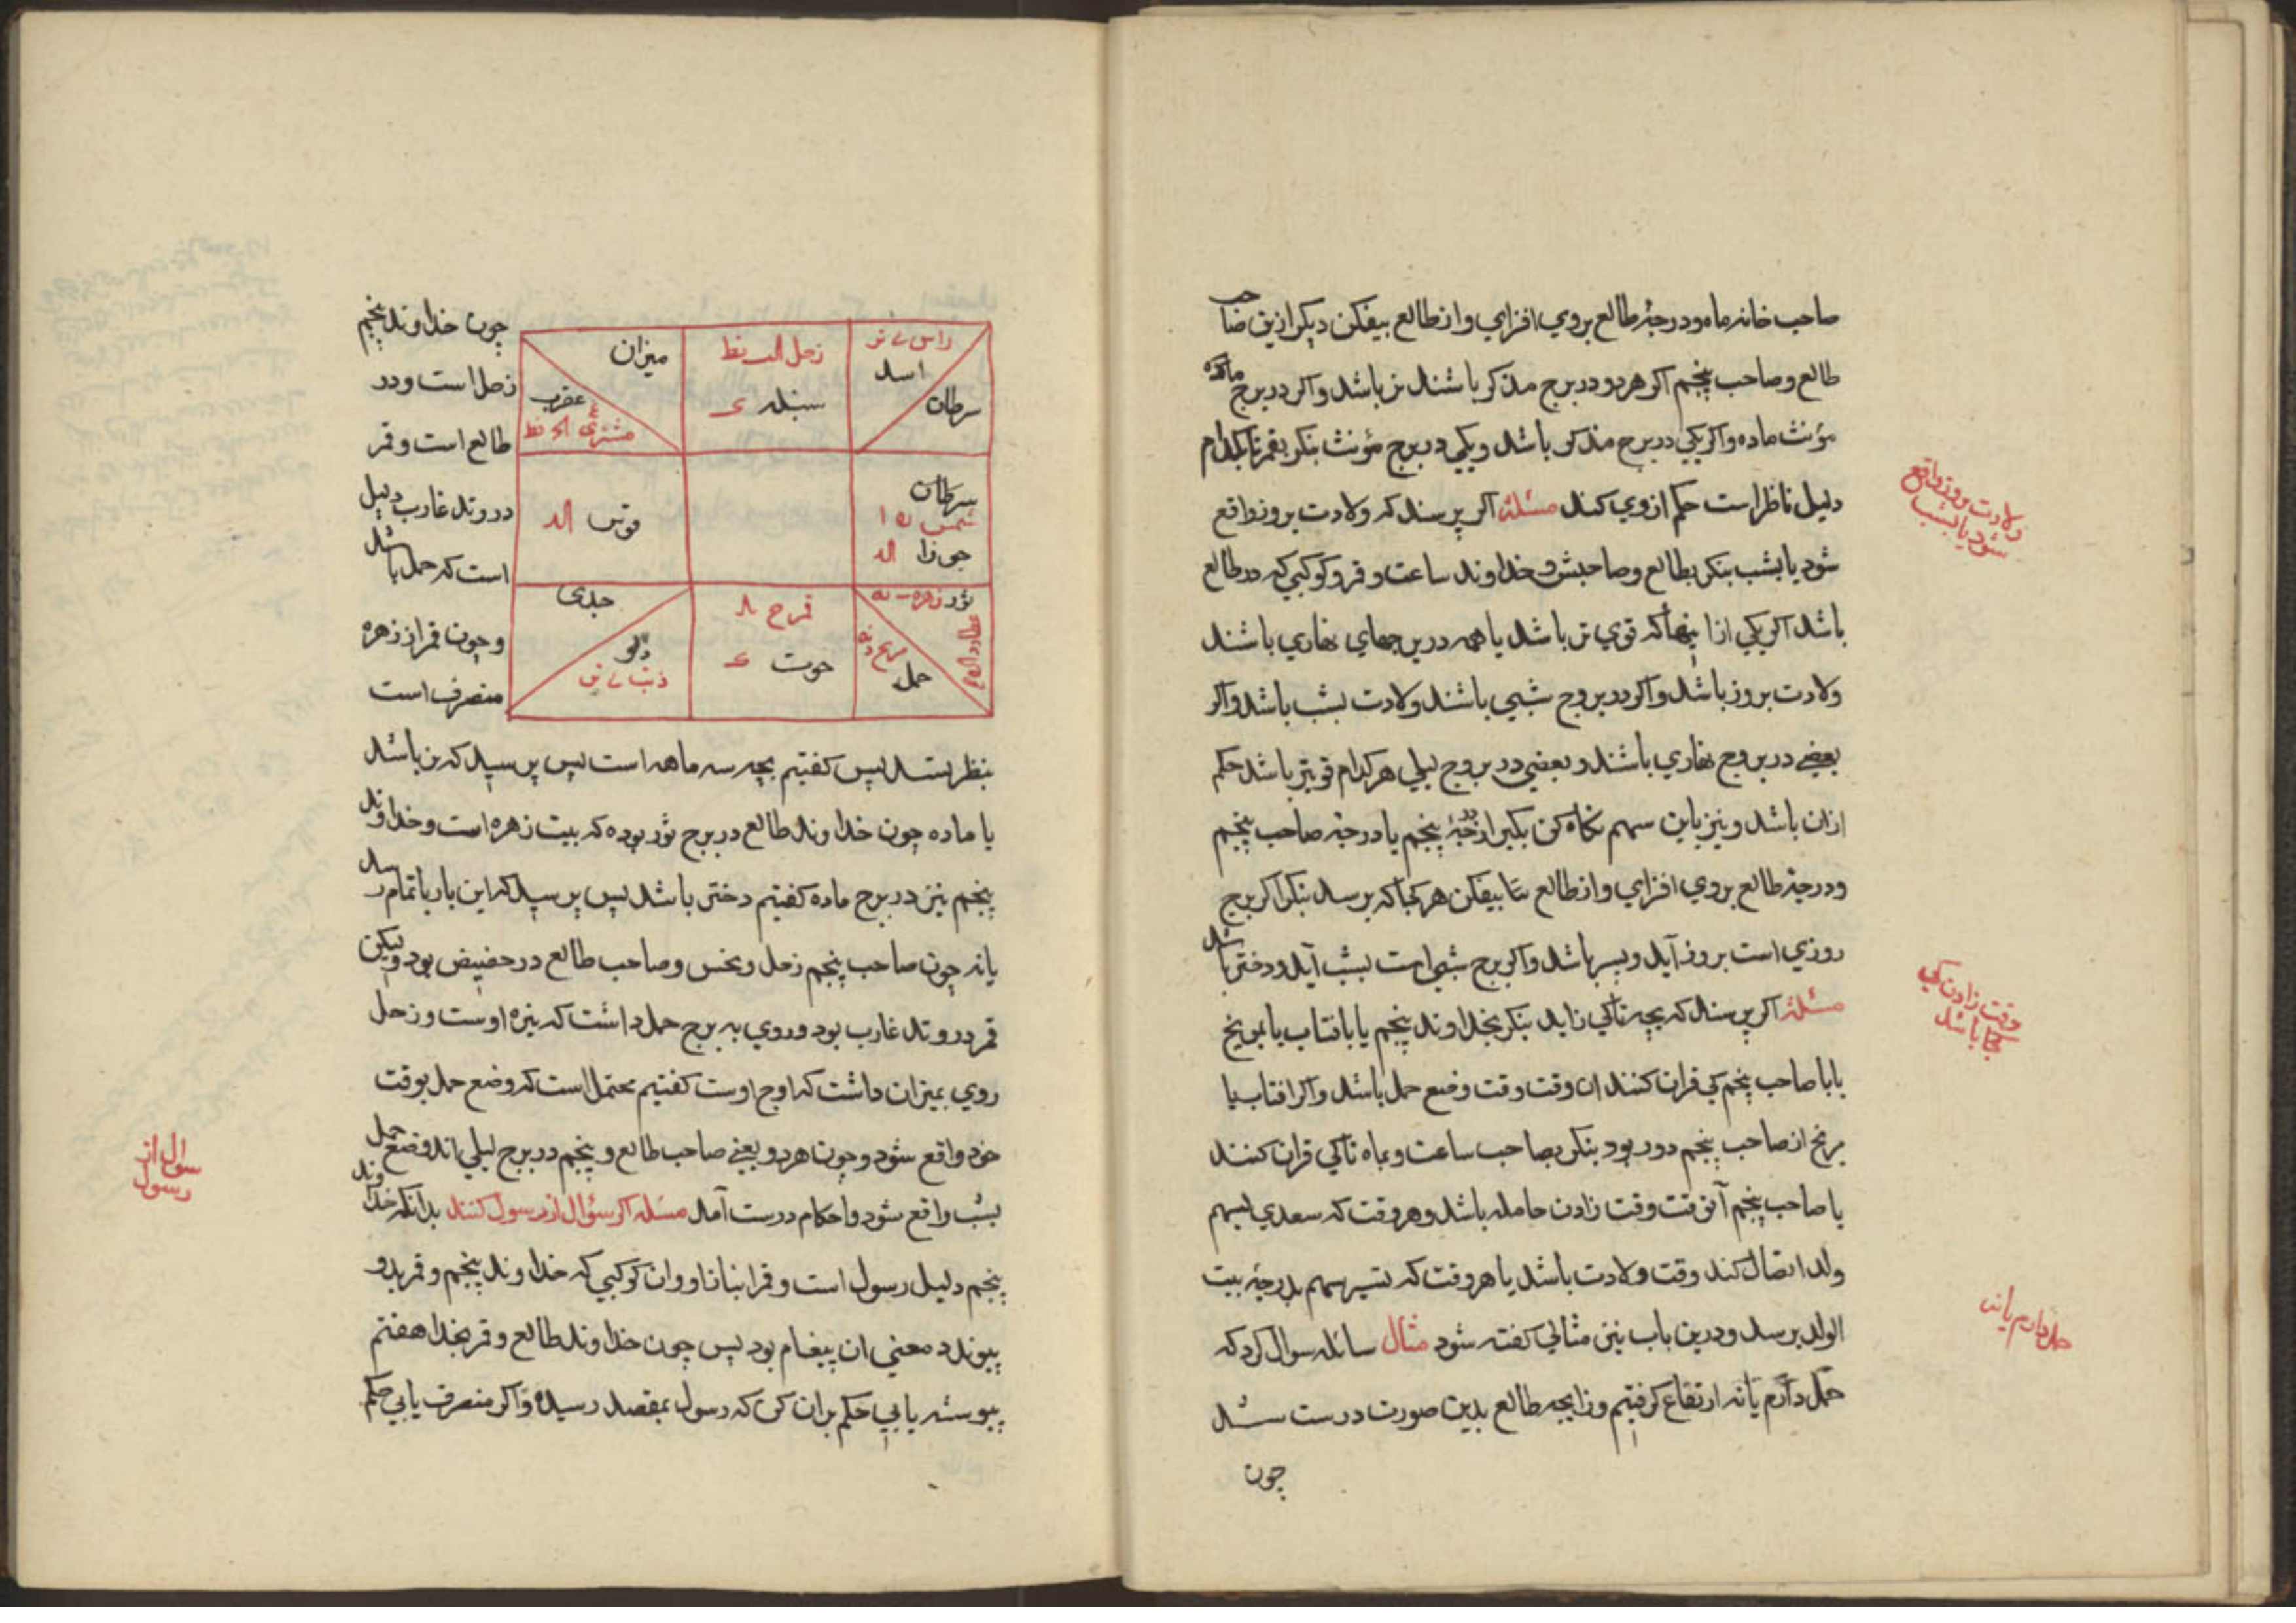 صاحب خانه ماه و درجهٔ طالع بروی افزای و از طالع بیفکن دیگر ازین صاحب
طالع و صاحب پنجم اکر هر دو در برج مذکر باشند نر باشد و اکر در برج ماده
مؤنث ماده و اکر یکی در برج مذکر باشد و یکی در برج مؤنث بنکر بقمر تا بکدام
دلیل ناظر است حکم از وی کند مسئلهٔ اکر پرسند که ولادت بروز واقع
شود یا بشب بنکر بطالع و صاحبش و خداوند ساعت و قمر و کوکبی که در طالع
باشد اکر یکی ازا ینها که قوی تر باشد یا همه در برجهای نهاری باشند
ولادت بروز باشد و اکر در بروج شبی باشند ولادت بشب باشد و اکر
بعضی در بروج نهاری باشند و بعضی در بروج لیلی هر کدام قویتر باشد حکم
ازان باشد و نیز باین سهم نکاه کن بکیر از درجهٔ پنجم یا درجهٔ صاحب پنجم
و درجهٔ طالع بروی افزای و از طالع بیفکن هر کجا که برسد بنکر اکر برج
روزی است بروز آید و پسر باشد و اکر برج شبی است بشب آید و دختر باشد
مسئلهٔ اکر پرسند که بچه تا کی زاید بنکر بخداوند پنجم یا بافتاب یا بمریخ
یا با صاحب پنجم کی قران کنند ان وقت وقت وضع حمل باشد و اکر افتاب یا
مریخ از صاحب پنجم دور بود بنکر بصاحب ساعت و بماه تا کی قران کنند
با صاحب پنجم آنوقت وقت زادن حامله باشد و هر وقت که سعدی بسهم
ولد اتصال کند وقت ولادت باشد یا هر وقت که تسییر سهم بدرجهٔ بیت
الولد برسد و درین باب نیز مثالی کفته شود مثال سائله سوال کرد که
حمل دارم یا نه ارتفاع کرفتیم و زایجه طالع بدین صورت درست شد
چون
ولادت بروز واقع
شود یا بشب
وقت زادن کی
کجا باشد
حمل دارم یا نه
چون خداوند پنجم
زحل است و در
طالع است و قمر
در وتد غارب دلیل
است که حمل باشد
و چون قمر از زهره
منصرف است
راس
اسد
سرطان
زحل
سنبله
میزان
عقرب
مشتری
سرطان
شمس
جوزا
قوس
ثور زهره
عطارد
مریخ
حمل
قمر
حوت
جدی
دلو
ذنب
بنظر تسدیس کفتیم بچه سه ماهه است پس پرسید که نر باشد
یا ماده چون خداوند طالع در برج ثور بوده که بیت زهره است و خداوند
پنجم نیز در برج ماده کفتیم دختر باشد پس پرسید که این بار باتمام رسد
یا نه چون صاحب پنجم زحل و نحس و صاحب طالع در حضیض بود ولیکن
قمر در وتد غارب بود و روی به برج حمل داشت که نیزه اوست و زحل
روی بمیزان داشت که اوج اوست کفتیم محتمل است که وضع حمل بوقت
خود واقع شود و چون هر دو یعنی صاحب طالع و پنجم در برج لیلی اند وضع حمل
بشب واقع شود و احکام درست آمد مسئله اکر سؤال از رسول کنند بدانکه خداوند
پنجم دلیل رسول است و قمر انباز او و ان کوکبی که خداوند پنجم و قمر بدو
پیوندد معنی ان پیغام بود پس چون خداوند طالع و قمر بخدا هفتم
پیوسته یابی حکم بران کن که رسول بمقصد رسیده و اکر منصرف یابی حکم
سوال از
رسول